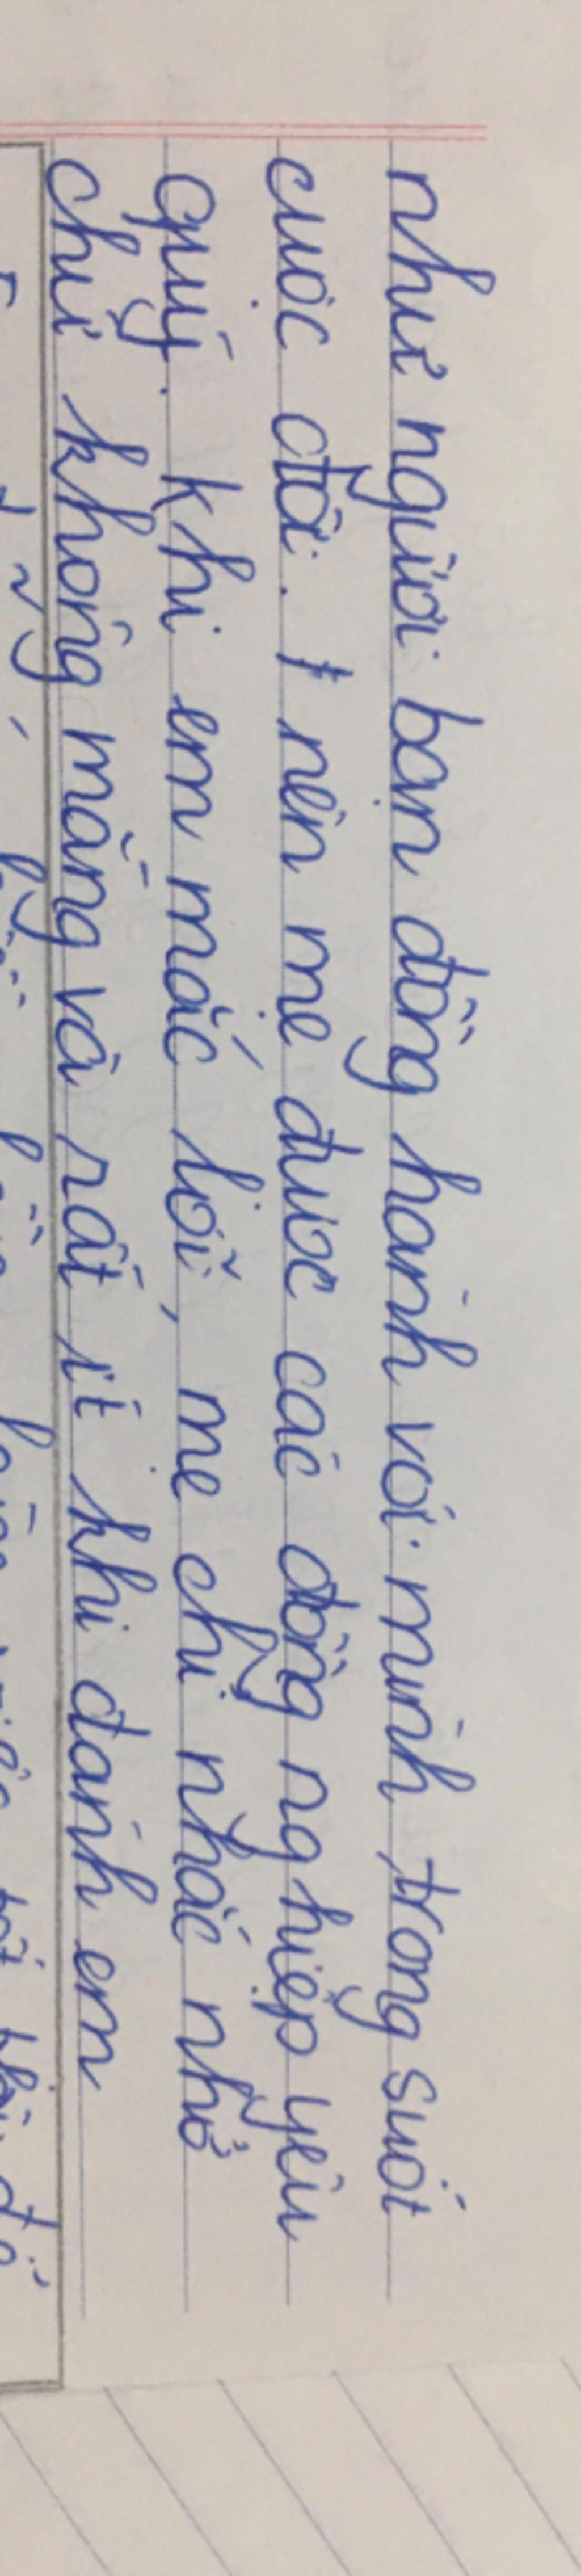 như người bạn đồng hành với mình trong suốt
cuộc đời. nên mẹ được các đồng nghiệp yêu
quý. Khi em mắc lỗi, mẹ chỉ nhắc nhở
chứ không mắng và rất ít khi đánh em